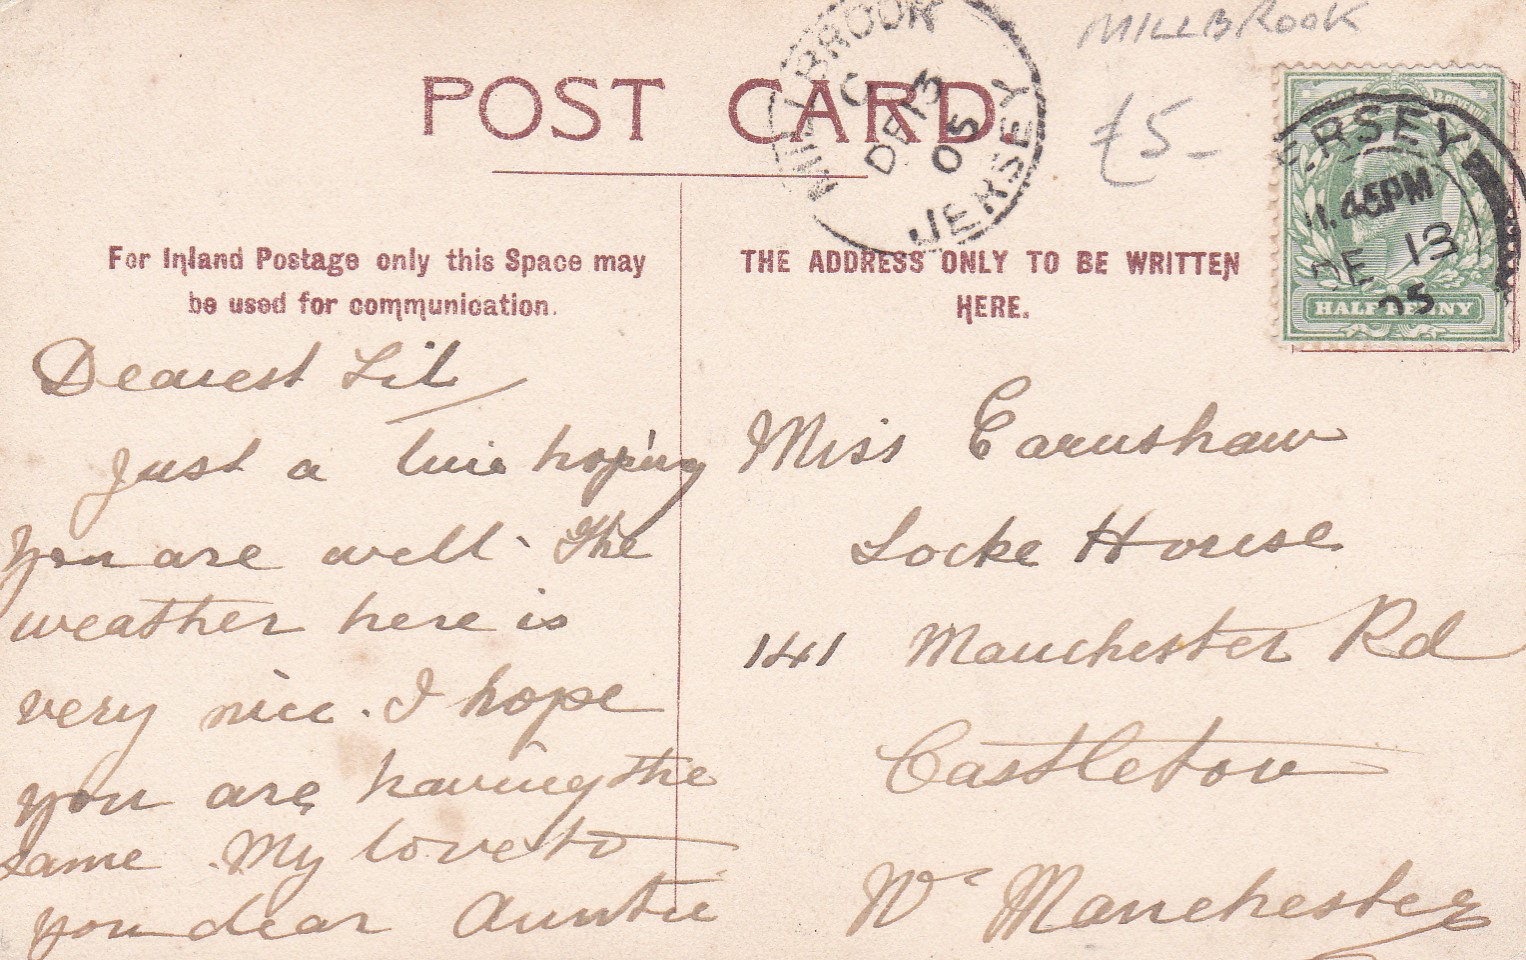 MILLBROOK
POST CARD.
MILLBROOK
C
DE 13
05
JERSEY
£5-
JERSEY
11.45PM
DE 13
05
HALFPENNY
For Inland Postage only this Space may
be used for communication.
THE ADDRESS ONLY TO BE WRITTEN
HERE.
Dearest Lil
Just a line hoping
you are well. The
weather here is
very nice. I hope
you are having the
same. My love to
you dear Auntie
Miss Earnshaw
Locke House
141 Manchester Rd
Castleton
Nr Manchester